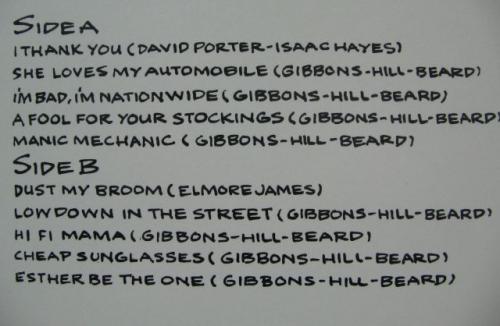 SIDE A
I THANK YOU (DAVID PORTER-ISAAC HAYES)
SHE LOVES MY AUTOMOBILE (GIBBONS-HILL-BEARD)
I'M BAD, I'M NATIONWIDE (GIBBONS-HILL-BEARD)
A FOOL FOR YOUR STOCKINGS (GIBBONS-HILL-BEARD)
MANIC MECHANIC (GIBBONS-HILL-BEARD)
SIDE B
DUST MY BROOM (ELMORE JAMES)
LOWDOWN IN THE STREET (GIBBONS-HILL-BEARD)
HI FI MAMA (GIBBONS-HILL-BEARD)
CHEAP SUNGLASSES (GIBBONS-HILL-BEARD)
ESTHER BE THE ONE (GIBBONS-HILL-BEARD)